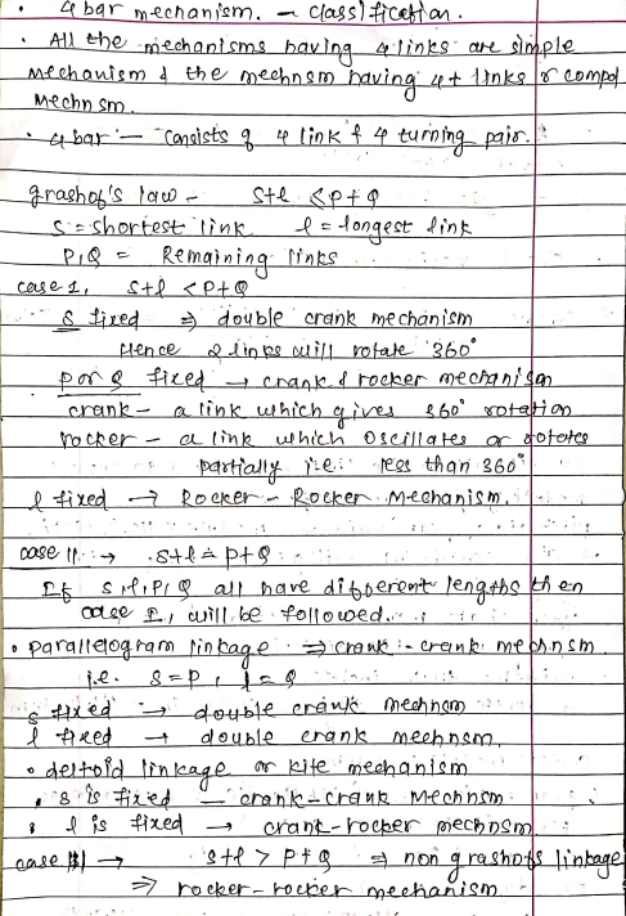 • 4 bar mechanism. - classification.
• All the mechanisms having 4 links are simple
Mechanism & the mechnsm having 4+ links r compd
Mechnsm.
• 4 bar - Consists of 4 link & 4 turning pair.
grashof's law - S+l ≤ P+Q
S = shortest link l = longest link
P, Q = Remaining links
case I, S+l < P+Q
S fixed ⇒ double crank mechanism
Hence 2 links will rotate 360°
P or Q fixed → crank & rocker mechanism
crank - a link which gives 360° rotation
rocker - a link which oscillates or rotates
partially i.e. less than 360°
l fixed → Rocker - Rocker Mechanism.
case II → S+l = P+Q
If S, l, P, Q all have different lengths then
case I, will be followed.
• parallelogram linkage ⇒ crank - crank mechnsm
i.e. S = P, l = Q
S fixed → double crank mechnsm
l fixed → double crank mechnsm.
• deltoid linkage or kite mechanism
• S is fixed — crank-crank Mechnsm.
• l is fixed → crank-rocker mechnsm
case III → S+l > P+Q ⇒ non grashof's linkage
⇒ rocker-rocker mechanism.